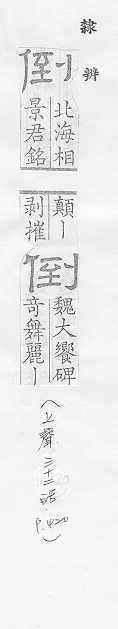 隸辨
倒
北海相
景君銘
顛｜
剥摧
倒
魏大饗碑
竒舞麗｜
(上聲．三十二 p.420)